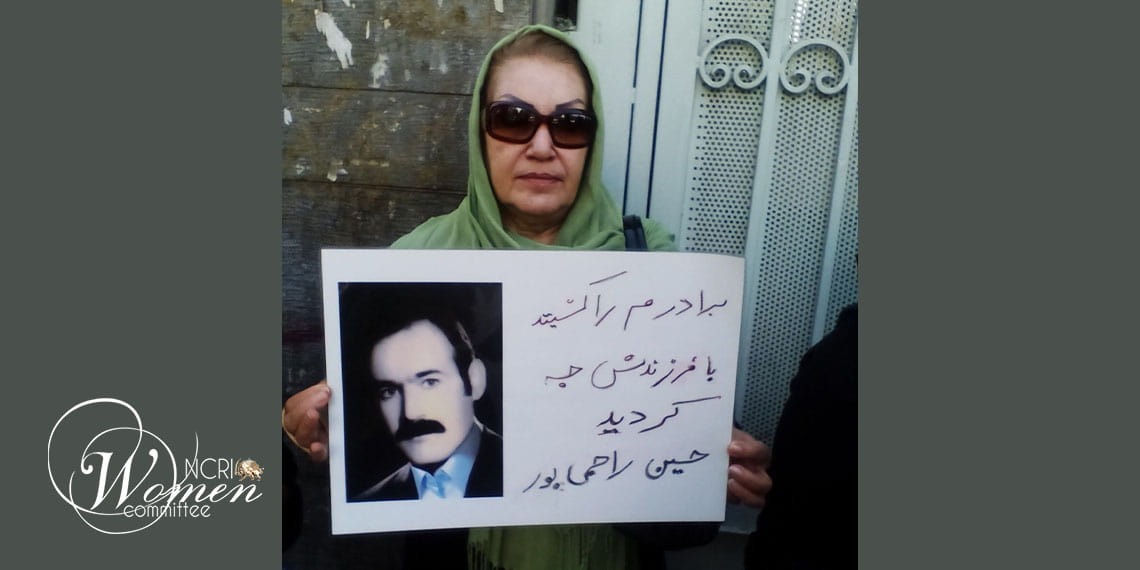 برادرم را کشتید
با فرزندش چه
کردید
حسین راحمی پور
NCRI
Women
committee